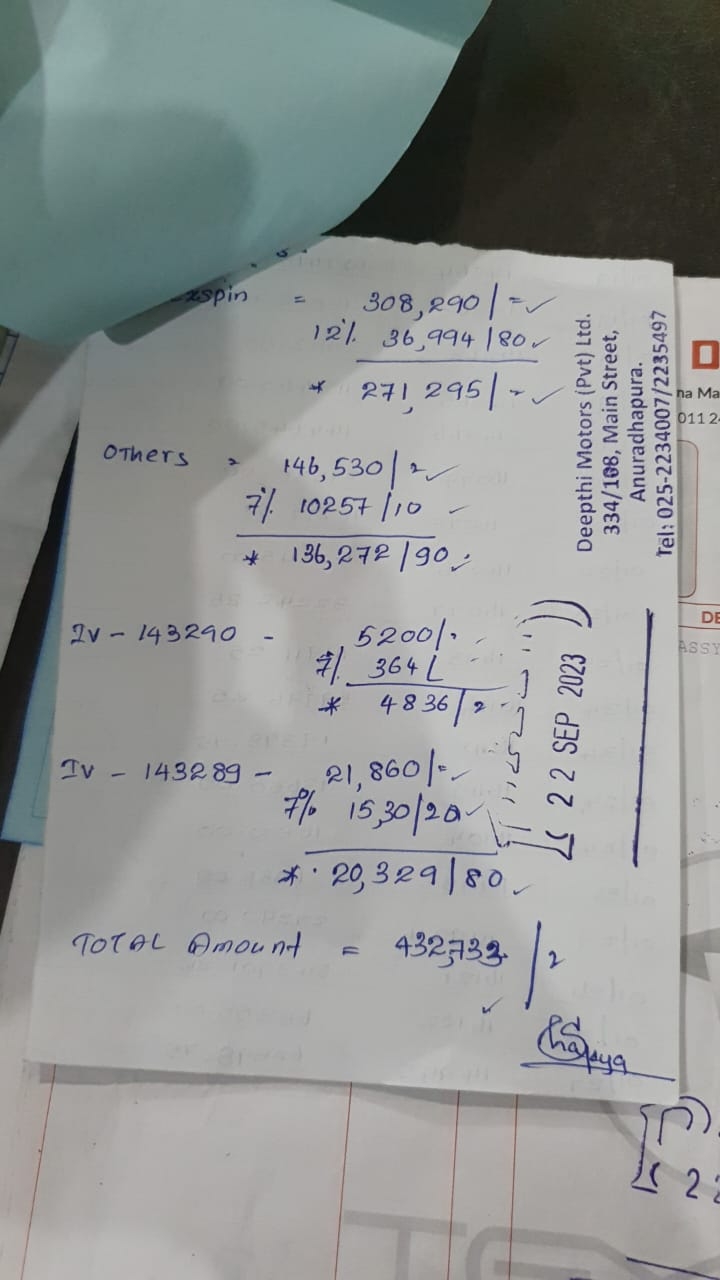 spin = 308,290/=
12% 36,994/80
* 271,295/-
Others = 146,530/=
7% 10257/10
* 136,272/90
Iv - 143290 - 5200/-
7% 364/
* 4836/=
Iv - 143289 - 21,860/=
7% 15,30/20
* 20,329/80
TOTAL Amount = 432,733/=
Deepthi Motors (Pvt) Ltd.
334/108, Main Street,
Anuradhapura.
Tel: 025-2234007/2235497
22 SEP 2023
na Ma
011 2
DE
ASSY
22